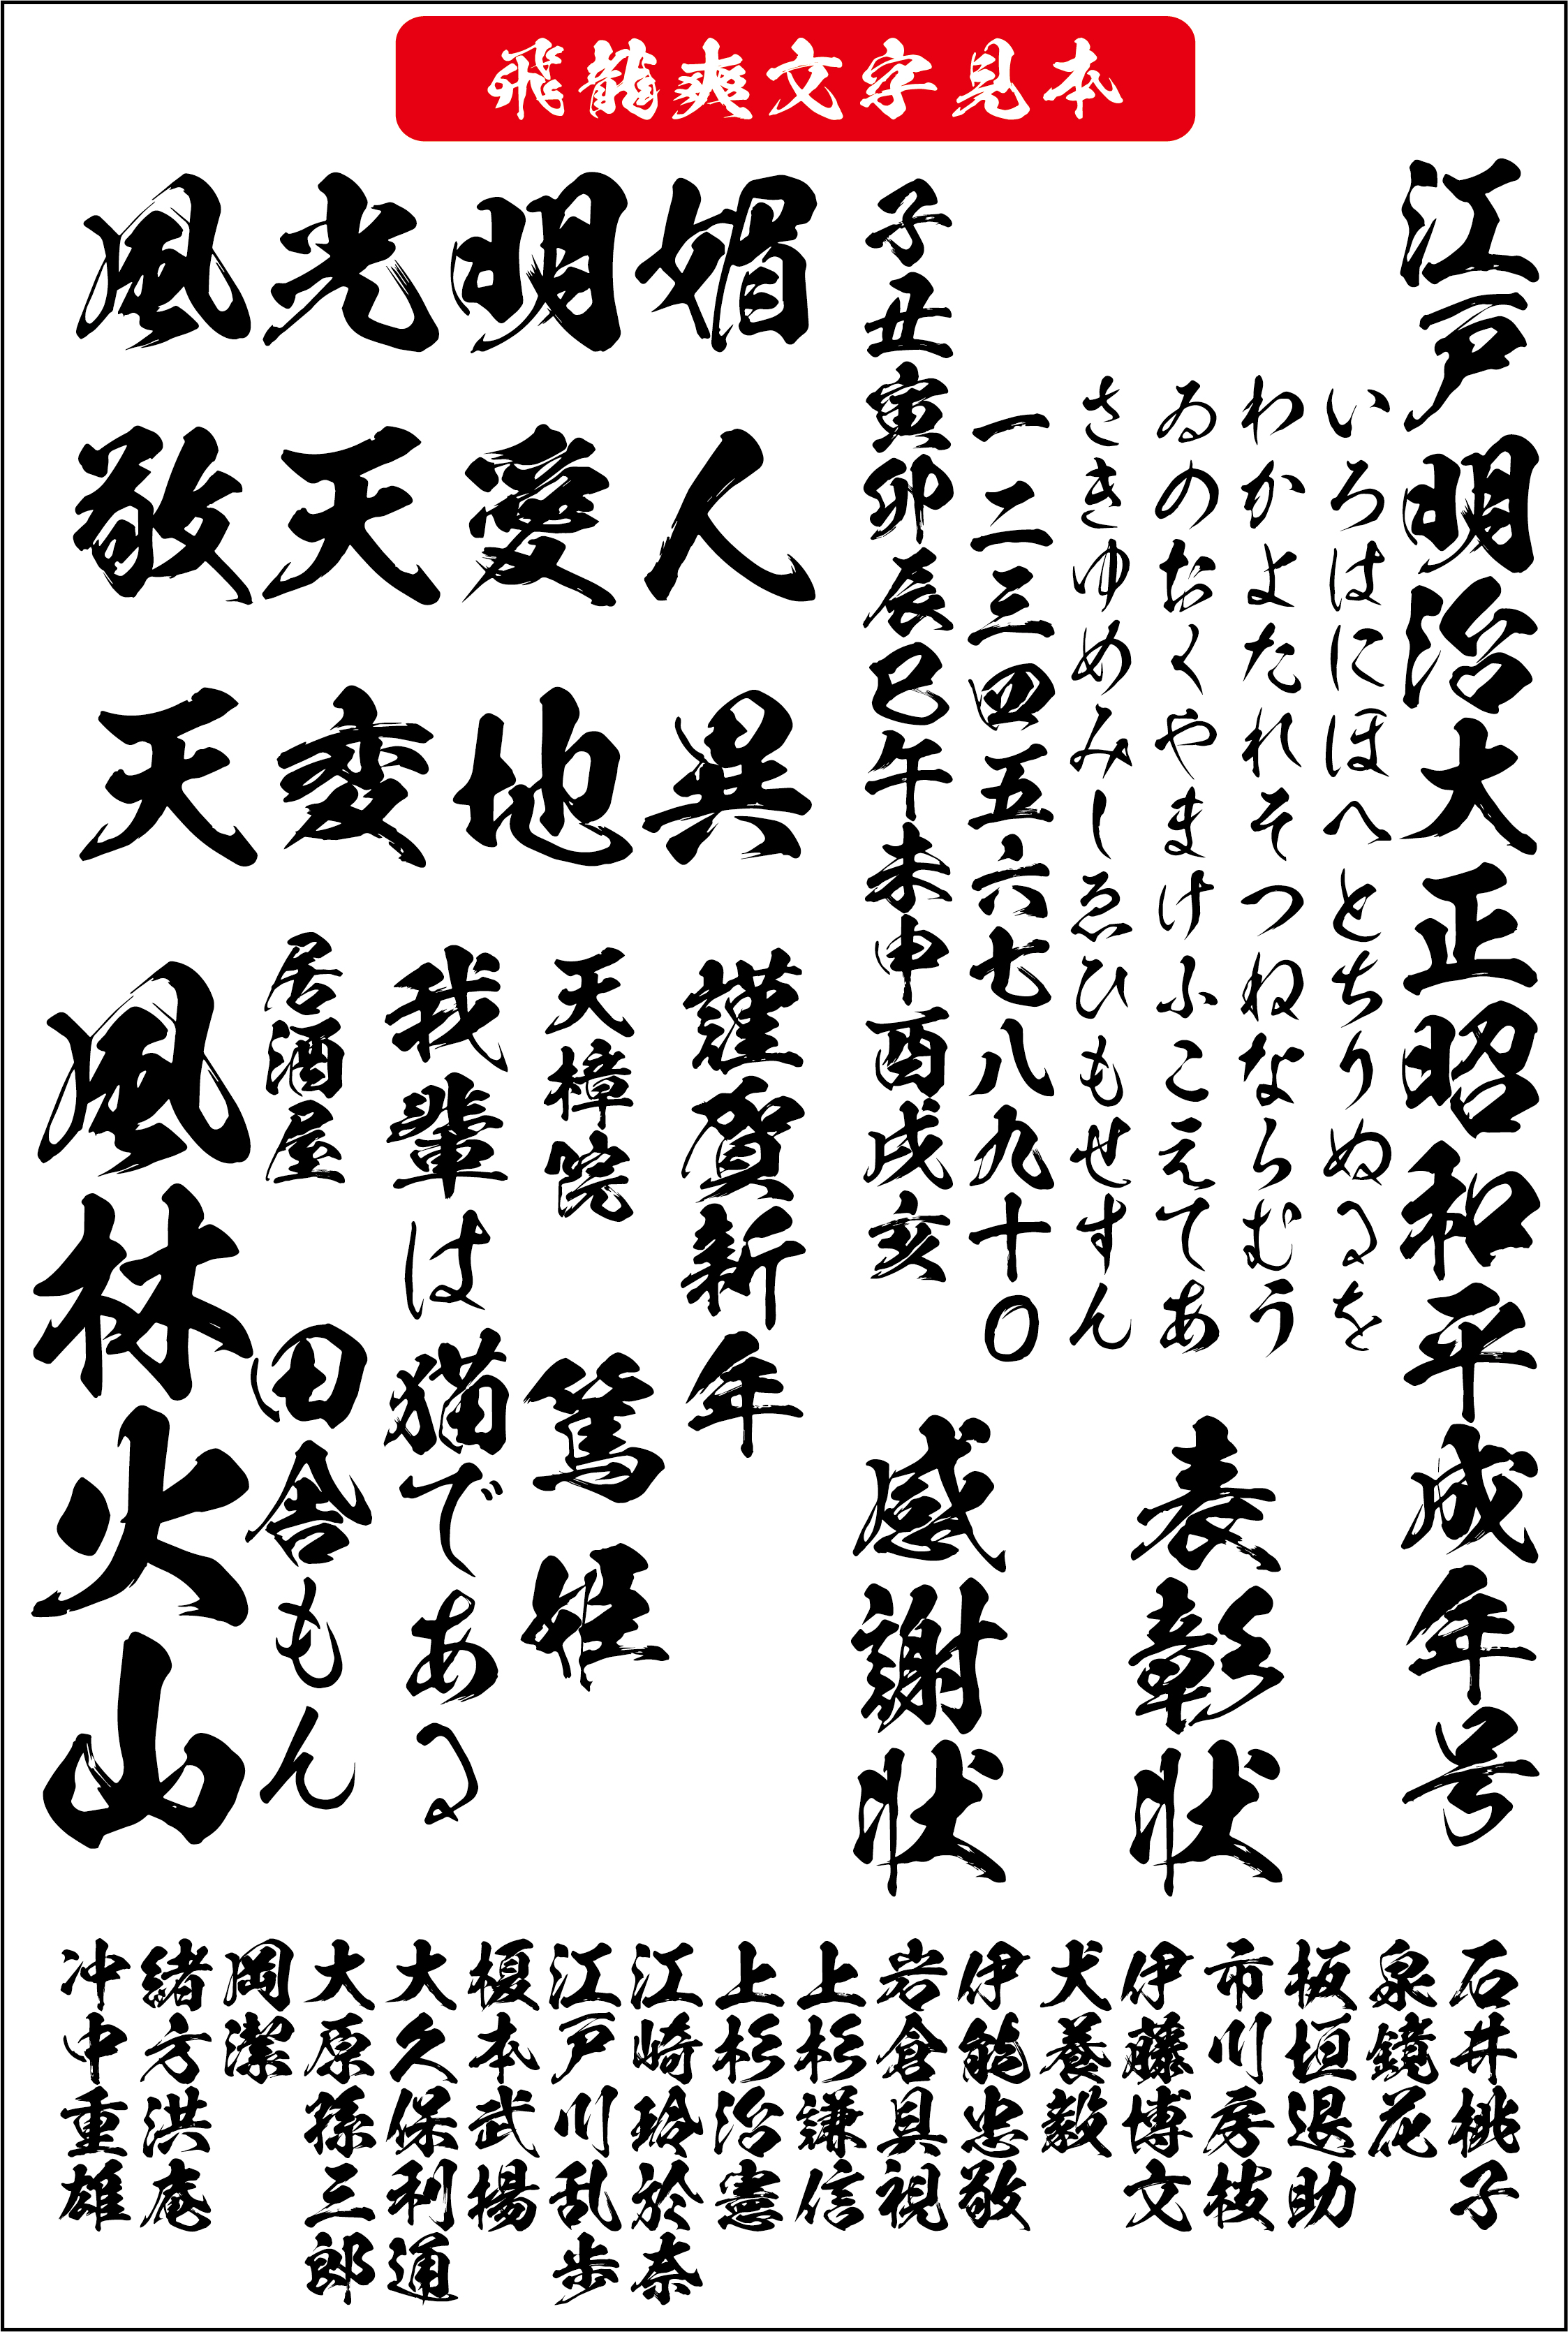 飛龍爽文字見本
江戸明治大正昭和平成年号
いろはにほへとちりぬるを
わかよたれそつねならむう
ゐのおくやまけふこえてあ
さきゆめみしゑひもせすん
一二三四五六七八九十〇
子丑寅卯辰巳午未申酉戌亥
表彰状
感謝状
風光明媚
敬天愛人
天変地異
謹賀新年
天樟院
篤
我輩は猫である
居酒屋
田舎もん
風林火山
石井桃子
泉鏡花
板垣退助
市川房枝
伊藤博文
犬養毅
伊能忠敬
岩倉具視
上杉謙信
上杉治憲
江崎玲於奈
江戸川乱歩
榎本武揚
大久保利通
大原孫三郎
岡潔
緒方洪庵
冲中重雄